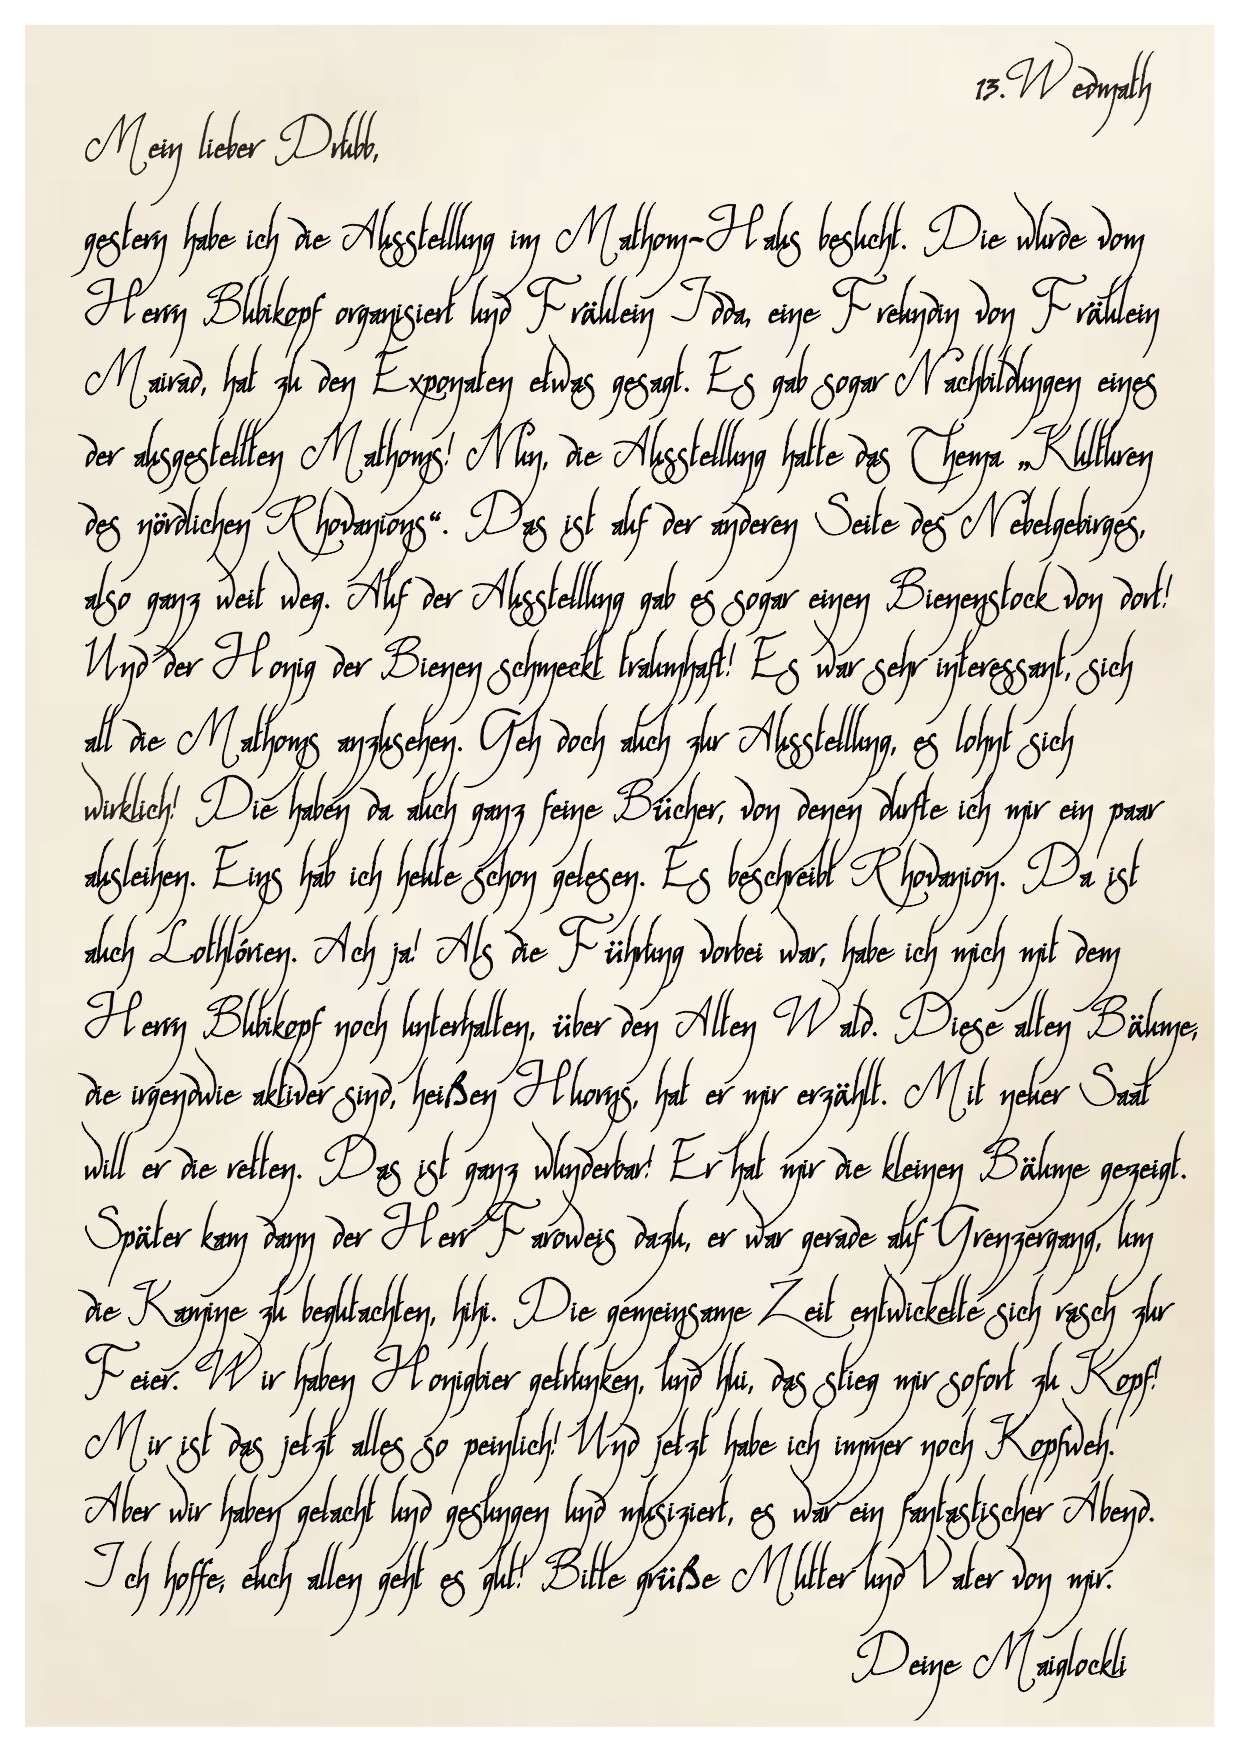 13. Wedmath
Mein lieber Drubb,
gestern habe ich die Ausstellung im Mathom-Haus besucht. Die wurde vom
Herrn Bubikopf organisiert und Fräulein Idda, eine Freundin von Fräulein
Mairad, hat zu den Exponaten etwas gesagt. Es gab sogar Nachbildungen eines
der ausgestellten Mathoms! Nun, die Ausstellung hatte das Thema „Kulturen
des nördlichen Rhovanions“. Das ist auf der anderen Seite des Nebelgebirges,
also ganz weit weg. Auf der Ausstellung gab es sogar einen Bienenstock von dort!
Und der Honig der Bienen schmeckt traumhaft! Es war sehr interessant, sich
all die Mathoms anzusehen. Geh doch auch zur Ausstellung, es lohnt sich
wirklich! Die haben da auch ganz feine Bücher, von denen durfte ich mir ein paar
ausleihen. Eins hab ich heute schon gelesen. Es beschreibt Rhovanion. Da ist
auch Lothlórien. Ach ja! Als die Führung vorbei war, habe ich mich mit dem
Herrn Bubikopf noch unterhalten, über den Alten Wald. Diese alten Bäume,
die irgendwie aktiver sind, heißen Huorns, hat er mir erzählt. Mit neuer Saat
will er die retten. Das ist ganz wunderbar! Er hat mir die kleinen Bäume gezeigt.
Später kam dann der Herr Faroweis dazu, er war gerade auf Grenzergang, um
die Kamine zu begutachten, hihi. Die gemeinsame Zeit entwickelte sich rasch zur
Feier. Wir haben Honigbier getrunken, und hui, das stieg mir sofort zu Kopf!
Mir ist das jetzt alles so peinlich! Und jetzt habe ich immer noch Kopfweh.
Aber wir haben gelacht und gesungen und musiziert, es war ein fantastischer Abend.
Ich hoffe, euch allen geht es gut! Bitte grüße Mutter und Vater von mir.
Deine Maiglockli